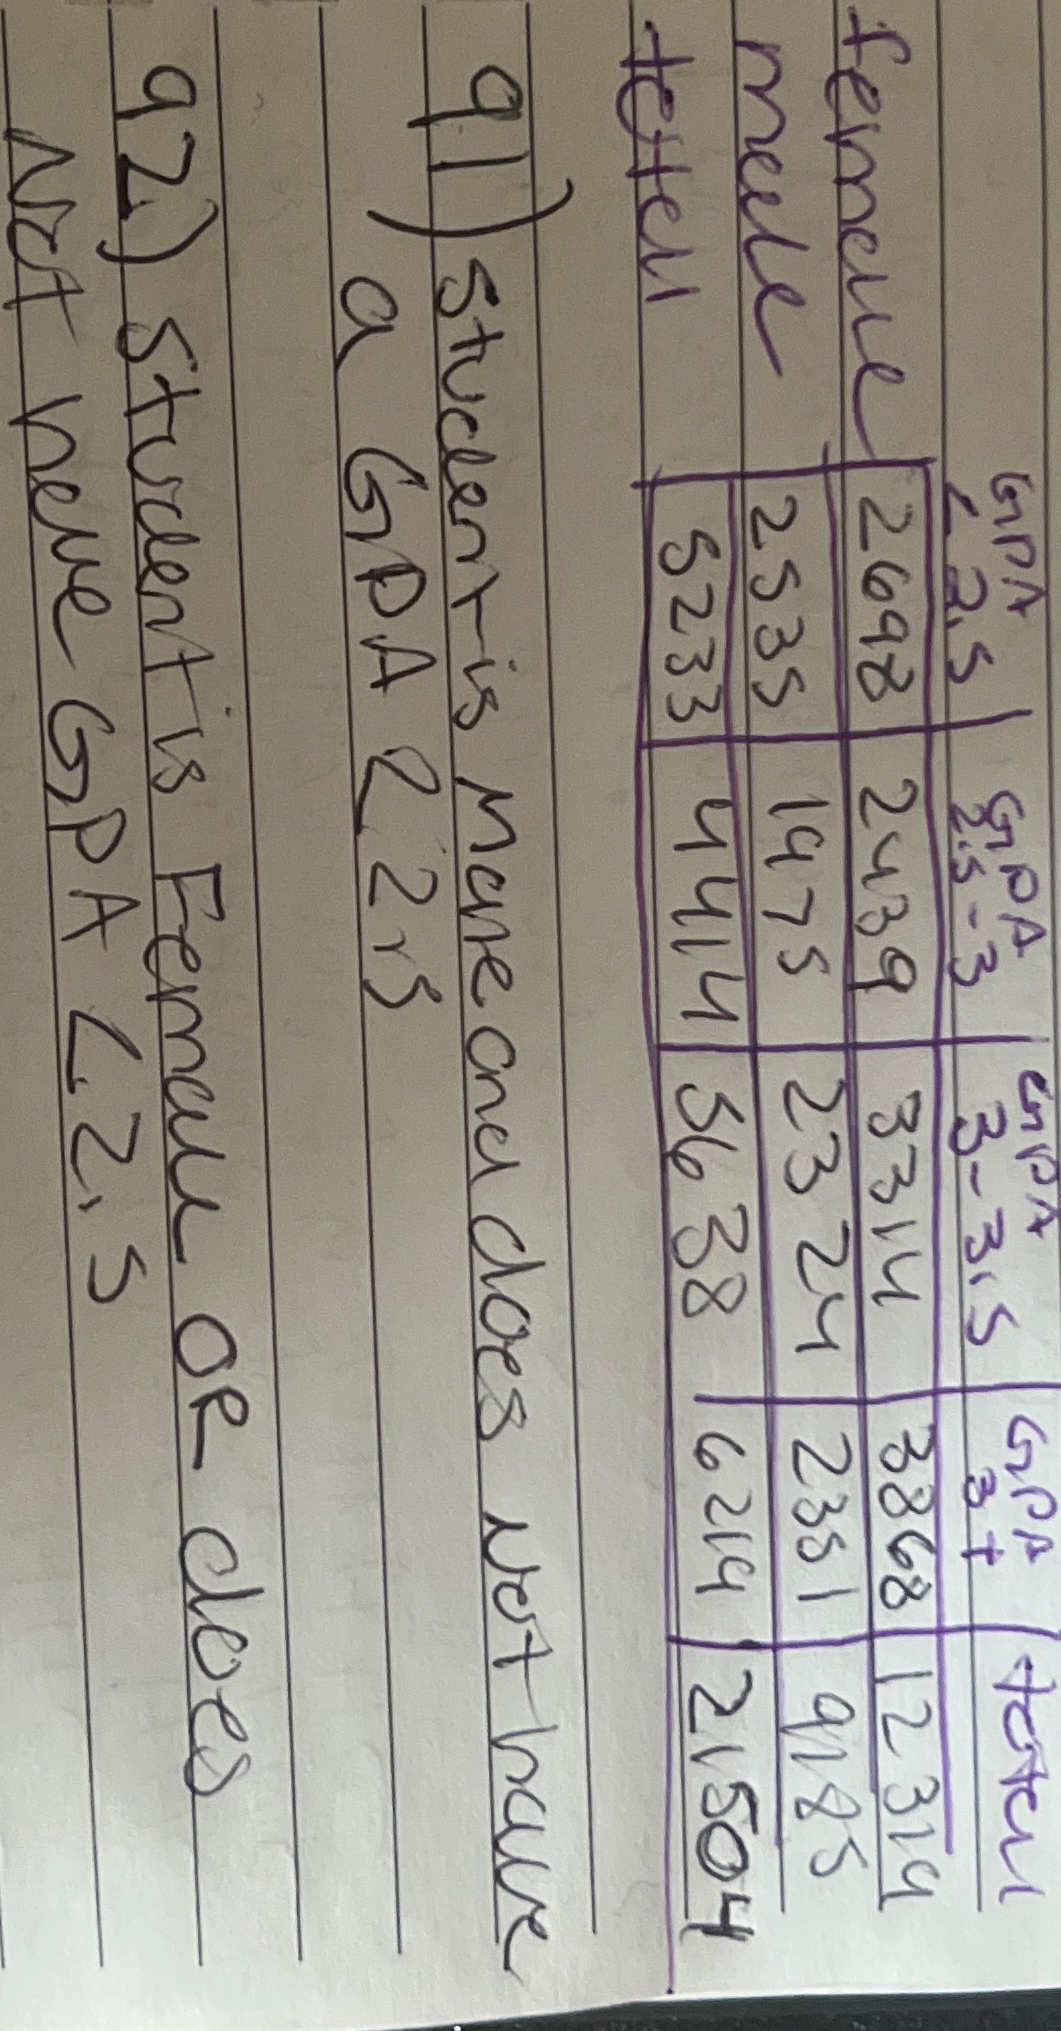 GPA GPA GPA GPA total
< 2.5 2.5-3 3-3.5 3+
female 2698 2439 3314 3868 12319
male 2535 1975 2324 2351 9185
total 5233 4414 5638 6219 21504
q1) student is Male and does Not have
a GPA < 2.5
q2) student is Female OR does
Not have GPA < 2.5